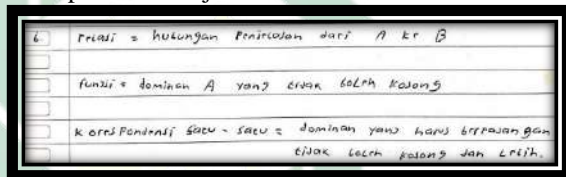 6. relasi = hubungan Penirlasan dari A ke B
funsi = dominan A yang tidak boleh kosong
Korespondensi satu - satu = dominan yang harus berpasangan
tidak boleh kosong dan lebih.